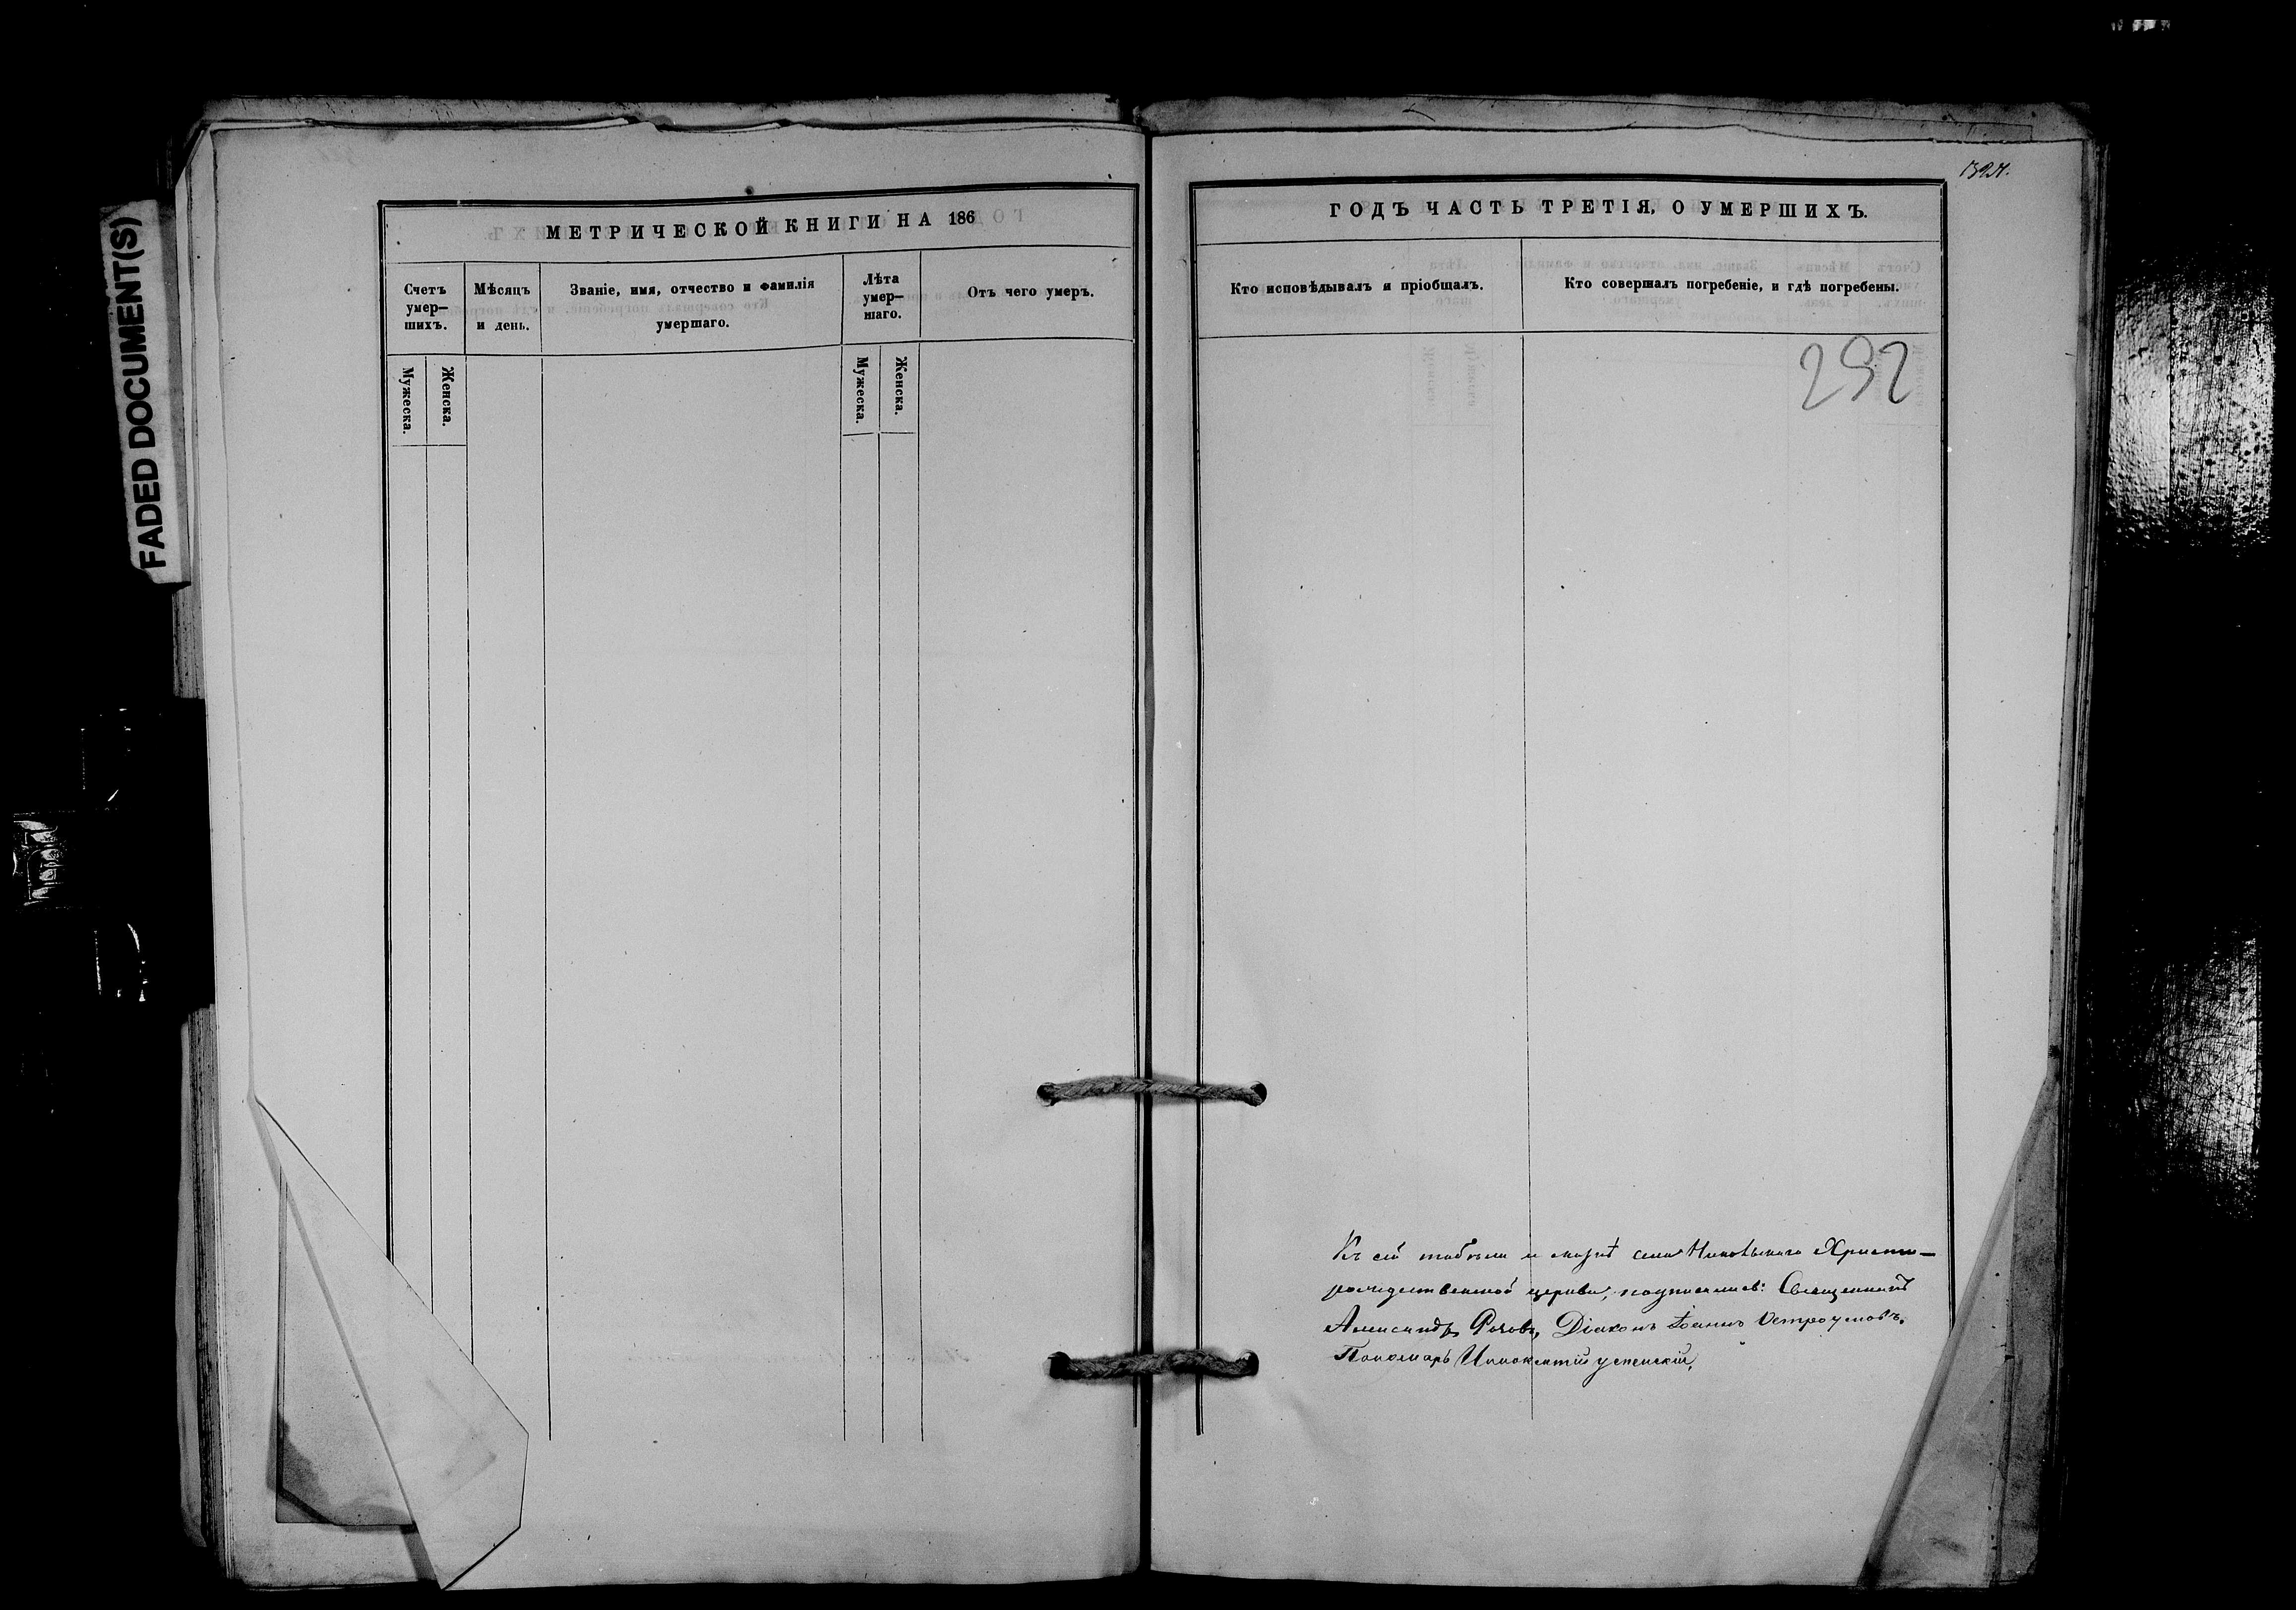 FADED DOCUMENT(S)
МЕТРИЧЕСКОЙ КНИГИ НА 186
Счетъ умер– шихъ.
Мѣсяцъ и день.
Званіе, имя, отчество и фамилія умершаго.
Лѣта умер– шаго.
Отъ чего умеръ.
Мужеска.
Женска.
Мужеска.
Женска.
ГОДЪ ЧАСТЬ ТРЕТІЯ, О УМЕРШИХЪ.
Кто исповѣдывалъ и пріобщалъ.
Кто совершалъ погребеніе, и гдѣ погребены.
292
Къ сей и села Христо–
рождественской церкви, подписались: Священникъ
Александръ Діаконъ Іоаннъ Остроумовъ.
Пономарь Иннокентій Успенскій,